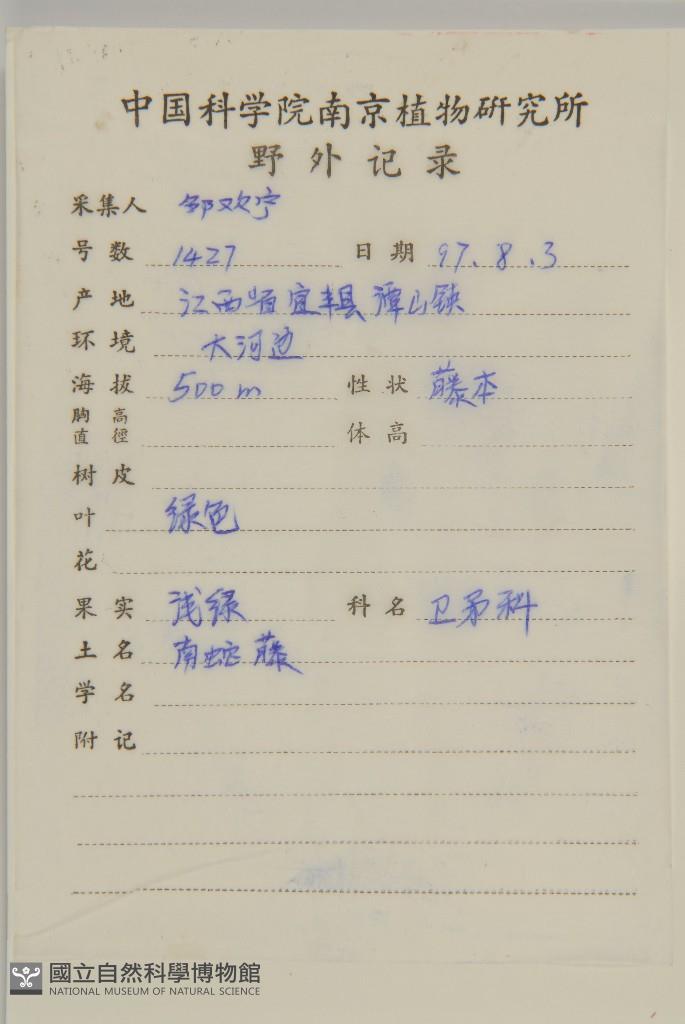 中国科学院南京植物研究所
野外记录
采集人 邹欢宁
号数 1427 日期 97.8.3
产地 江西省宜丰县潭山镇
环境 大河边
海拔 500m 性状 藤本
胸高直徑 体高
树皮
叶 绿色
花
果实 浅绿 科名 卫矛科
土名 南蛇藤
学名
附记
國立自然科學博物館
NATIONAL MUSEUM OF NATURAL SCIENCE